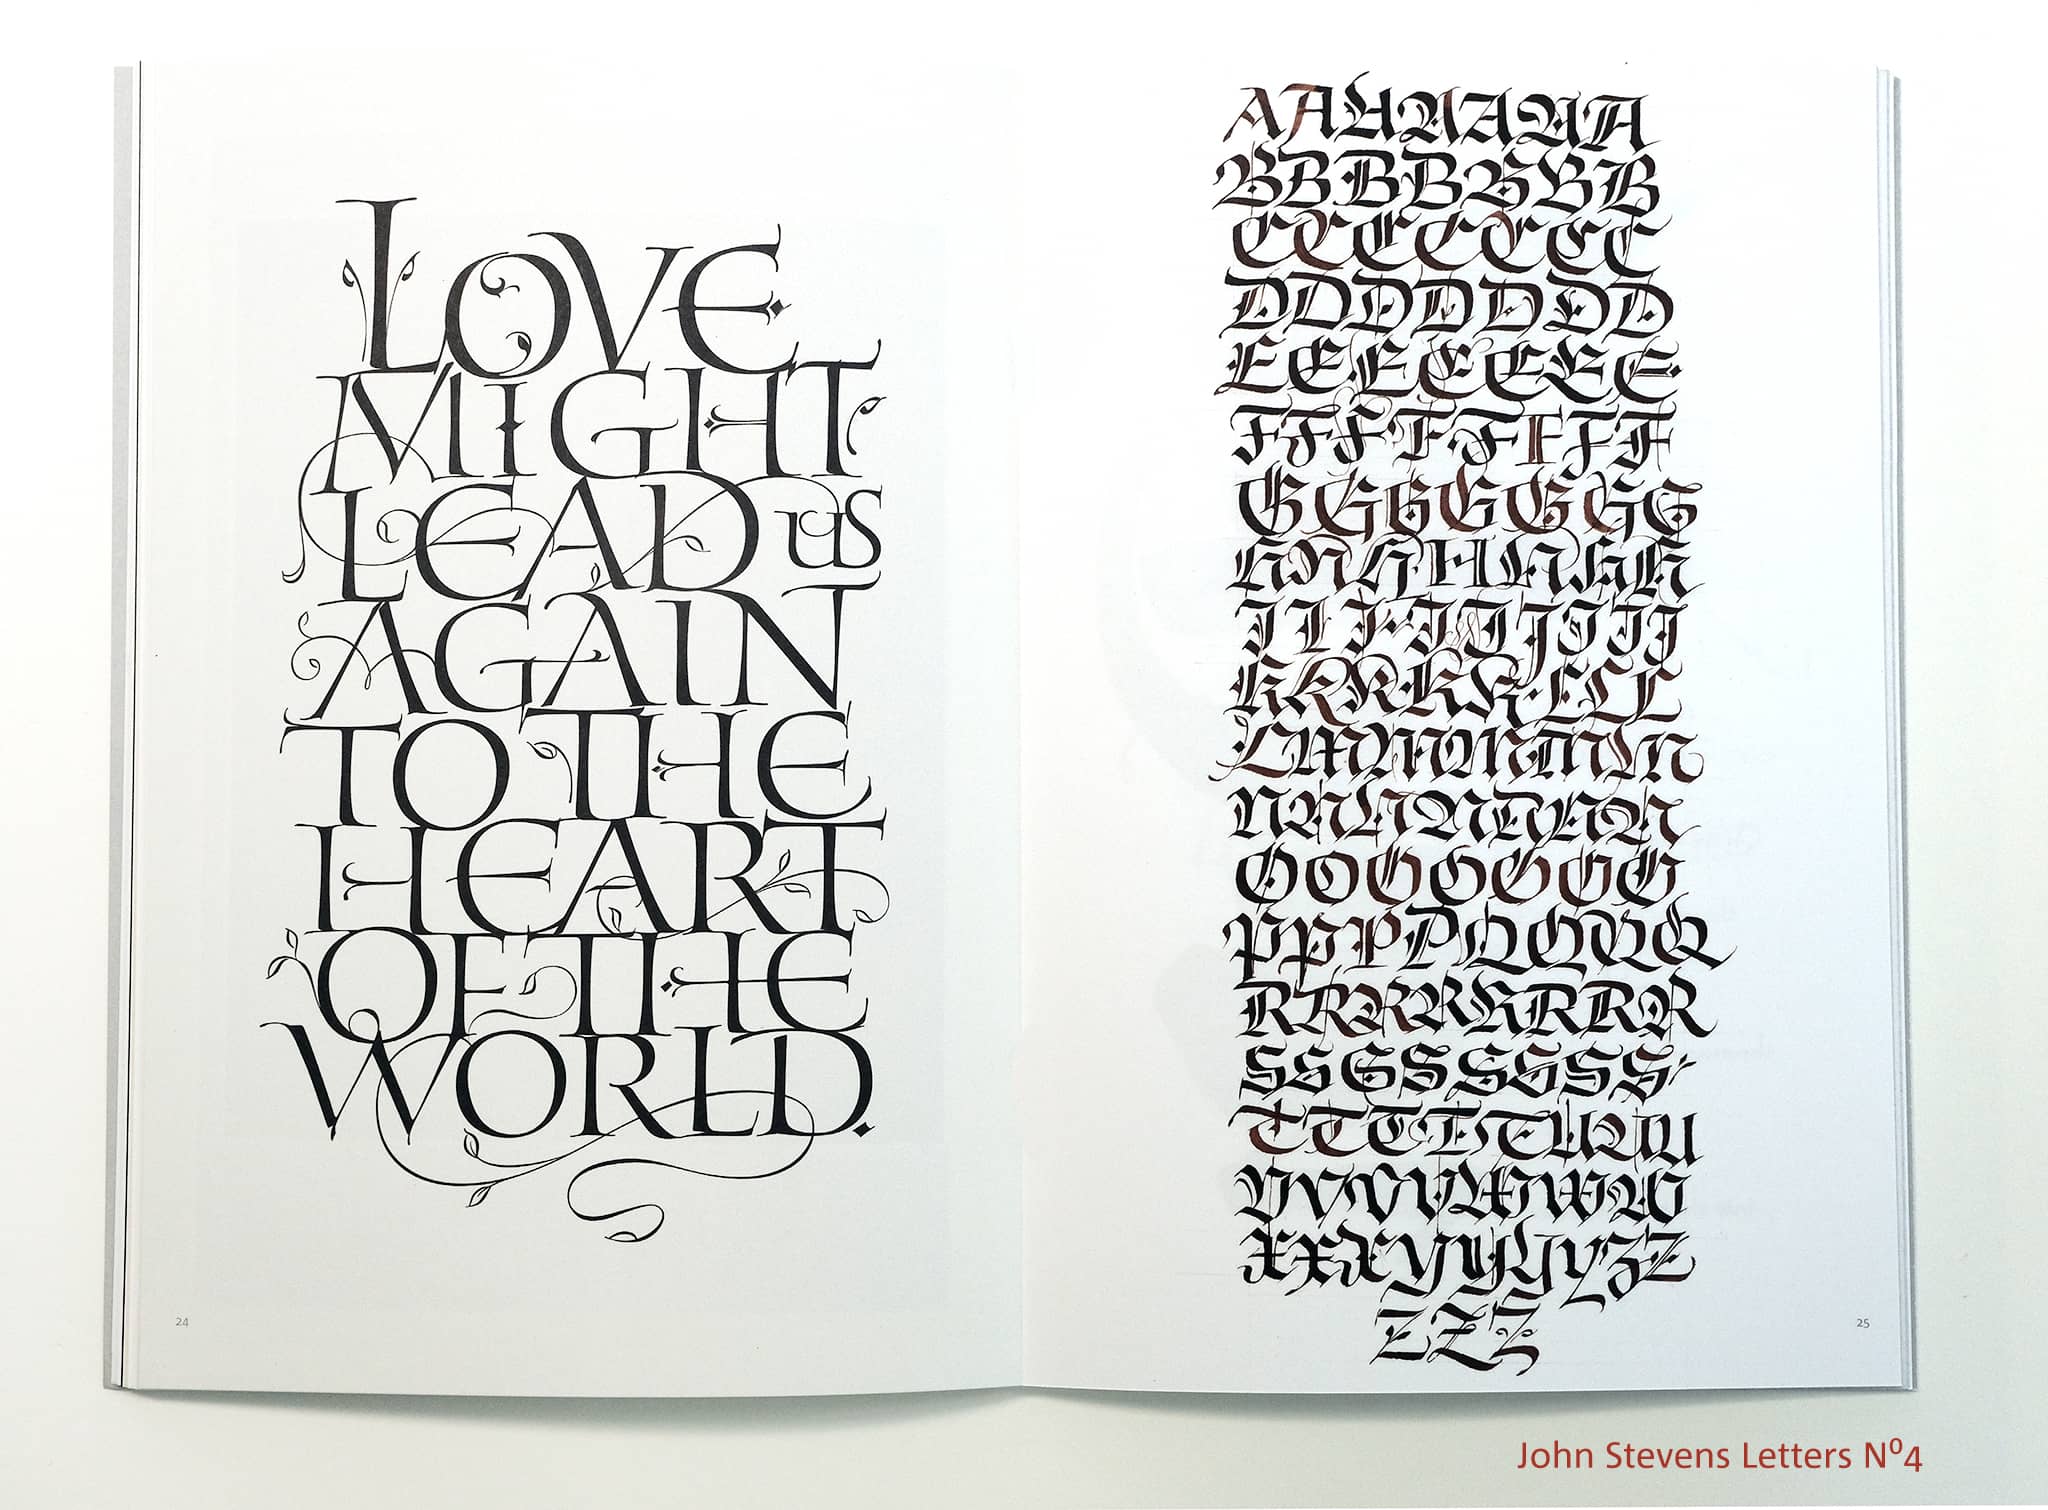 LOVE
MIGHT
LEAD US
AGAIN
TO THE
HEART
OF THE
WORLD.
24
AAAAAAA
BBBBBBB
CCCCCCC
DDDDDDD
EEEEEEE
FFFFFFFF
GGGGGGG
HHHHHHH
KKKKKLLL
LMMMMMMM
NNNNNNN
OOOOOOO
PPPPQQQQ
RRRRRRRR
SSSSSSSS
TTTTTUUU
XXXYYYYZZ
ZZZ
25
John Stevens Letters Nº4